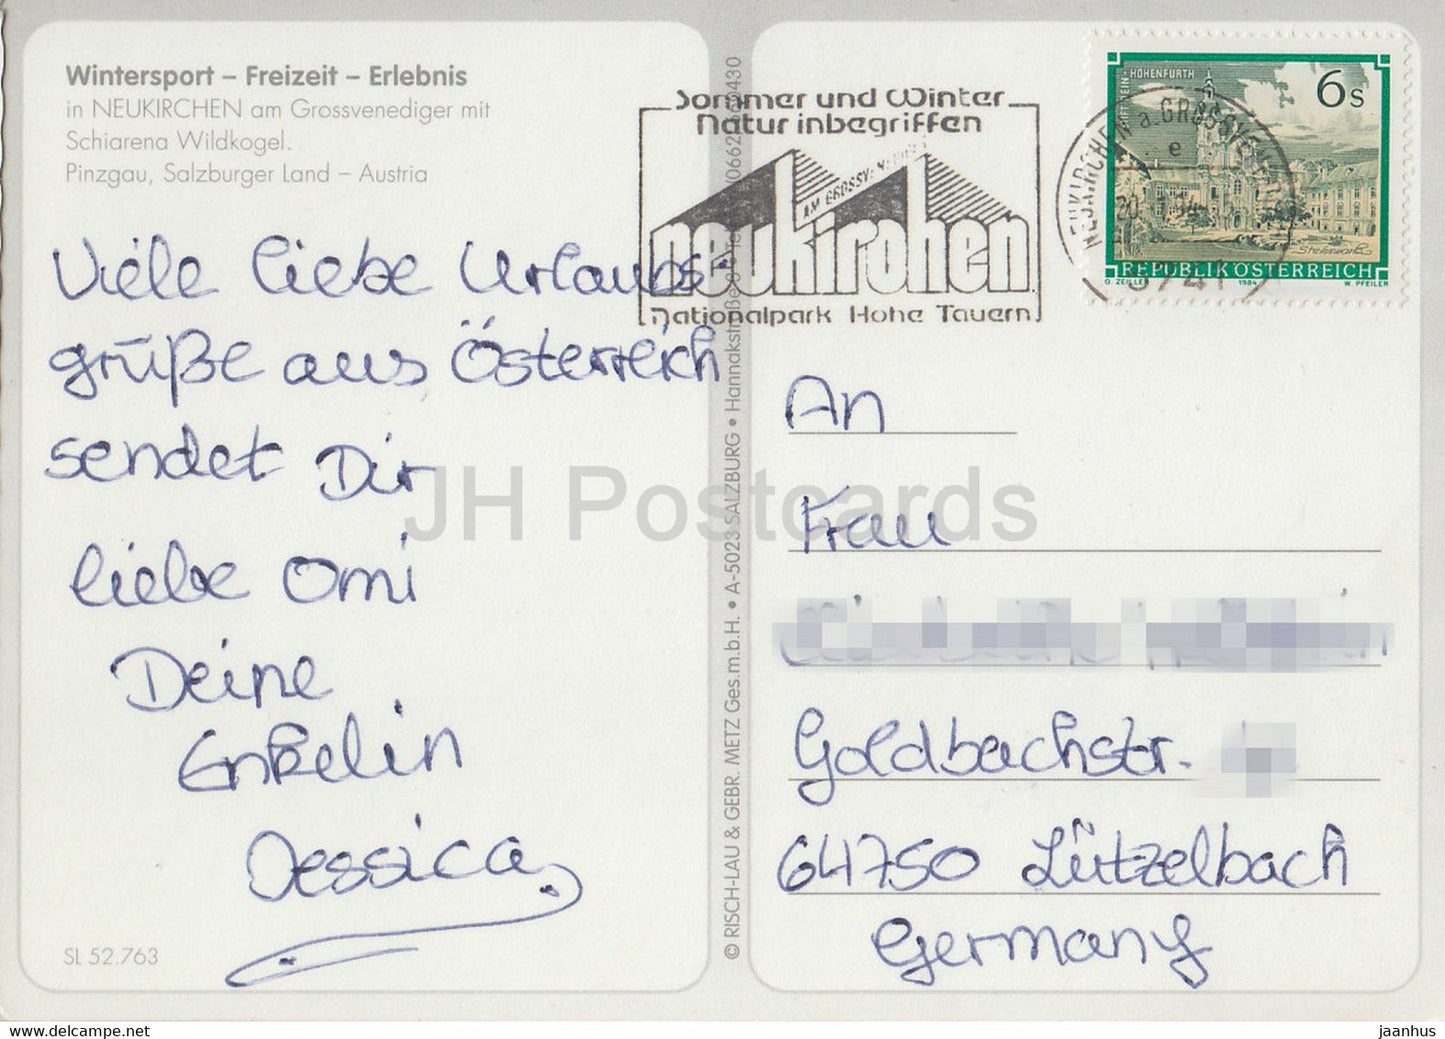 Wintersport – Freizeit – Erlebnis
in NEUKIRCHEN am Grossvenediger mit
Schiarena Wildkogel.
Pinzgau, Salzburger Land – Austria
Viele liebe Urlaubs-
grüße aus Österreich
sendet Dir
liebe Omi
Deine
Enkelin
Jessica
SL 52.763
© RISCH-LAU & GEBR. METZ Ges.m.b.H. • A-5023 SALZBURG • Hannakstraße
Sommer und Winter
Natur inbegriffen
AM GROSSV
neukirchen
Nationalpark Hohe Tauern
NEUKIRCHEN a. GROSSVENED
e
5741
HOHENFURTH
6s
REPUBLIK ÖSTERREICH
O. ZEILLER 1984 W. PFEILER
An
Frau
Goldbachstr.
64750 Lützelbach
Germany
JH Postcards
www.delcampe.net
jaanhus